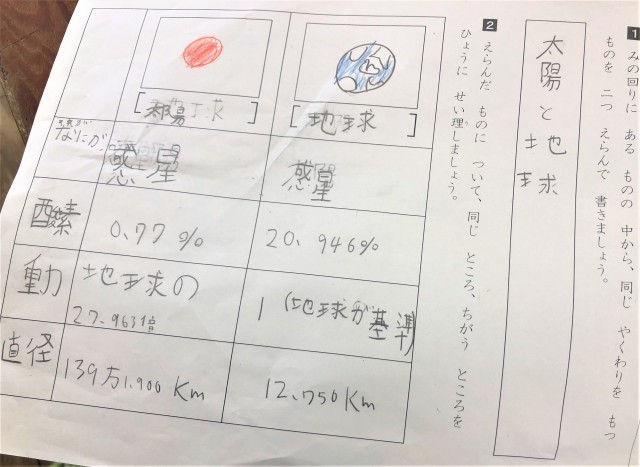 1 みの回りに ある ものの 中から、同じ やくわりを もつ
ものを 二つ えらんで 書きましょう。
太陽と地球
2 えらんだ ものに ついて、同じ ところ、ちがう ところを
ひょうに せい理しましょう。
[地球]
惑星 惑星
酸素 0.77% 20.946%
動 地球の
27.963倍 1(地球が基準)
直径 139万1,900 Km 12,750Km